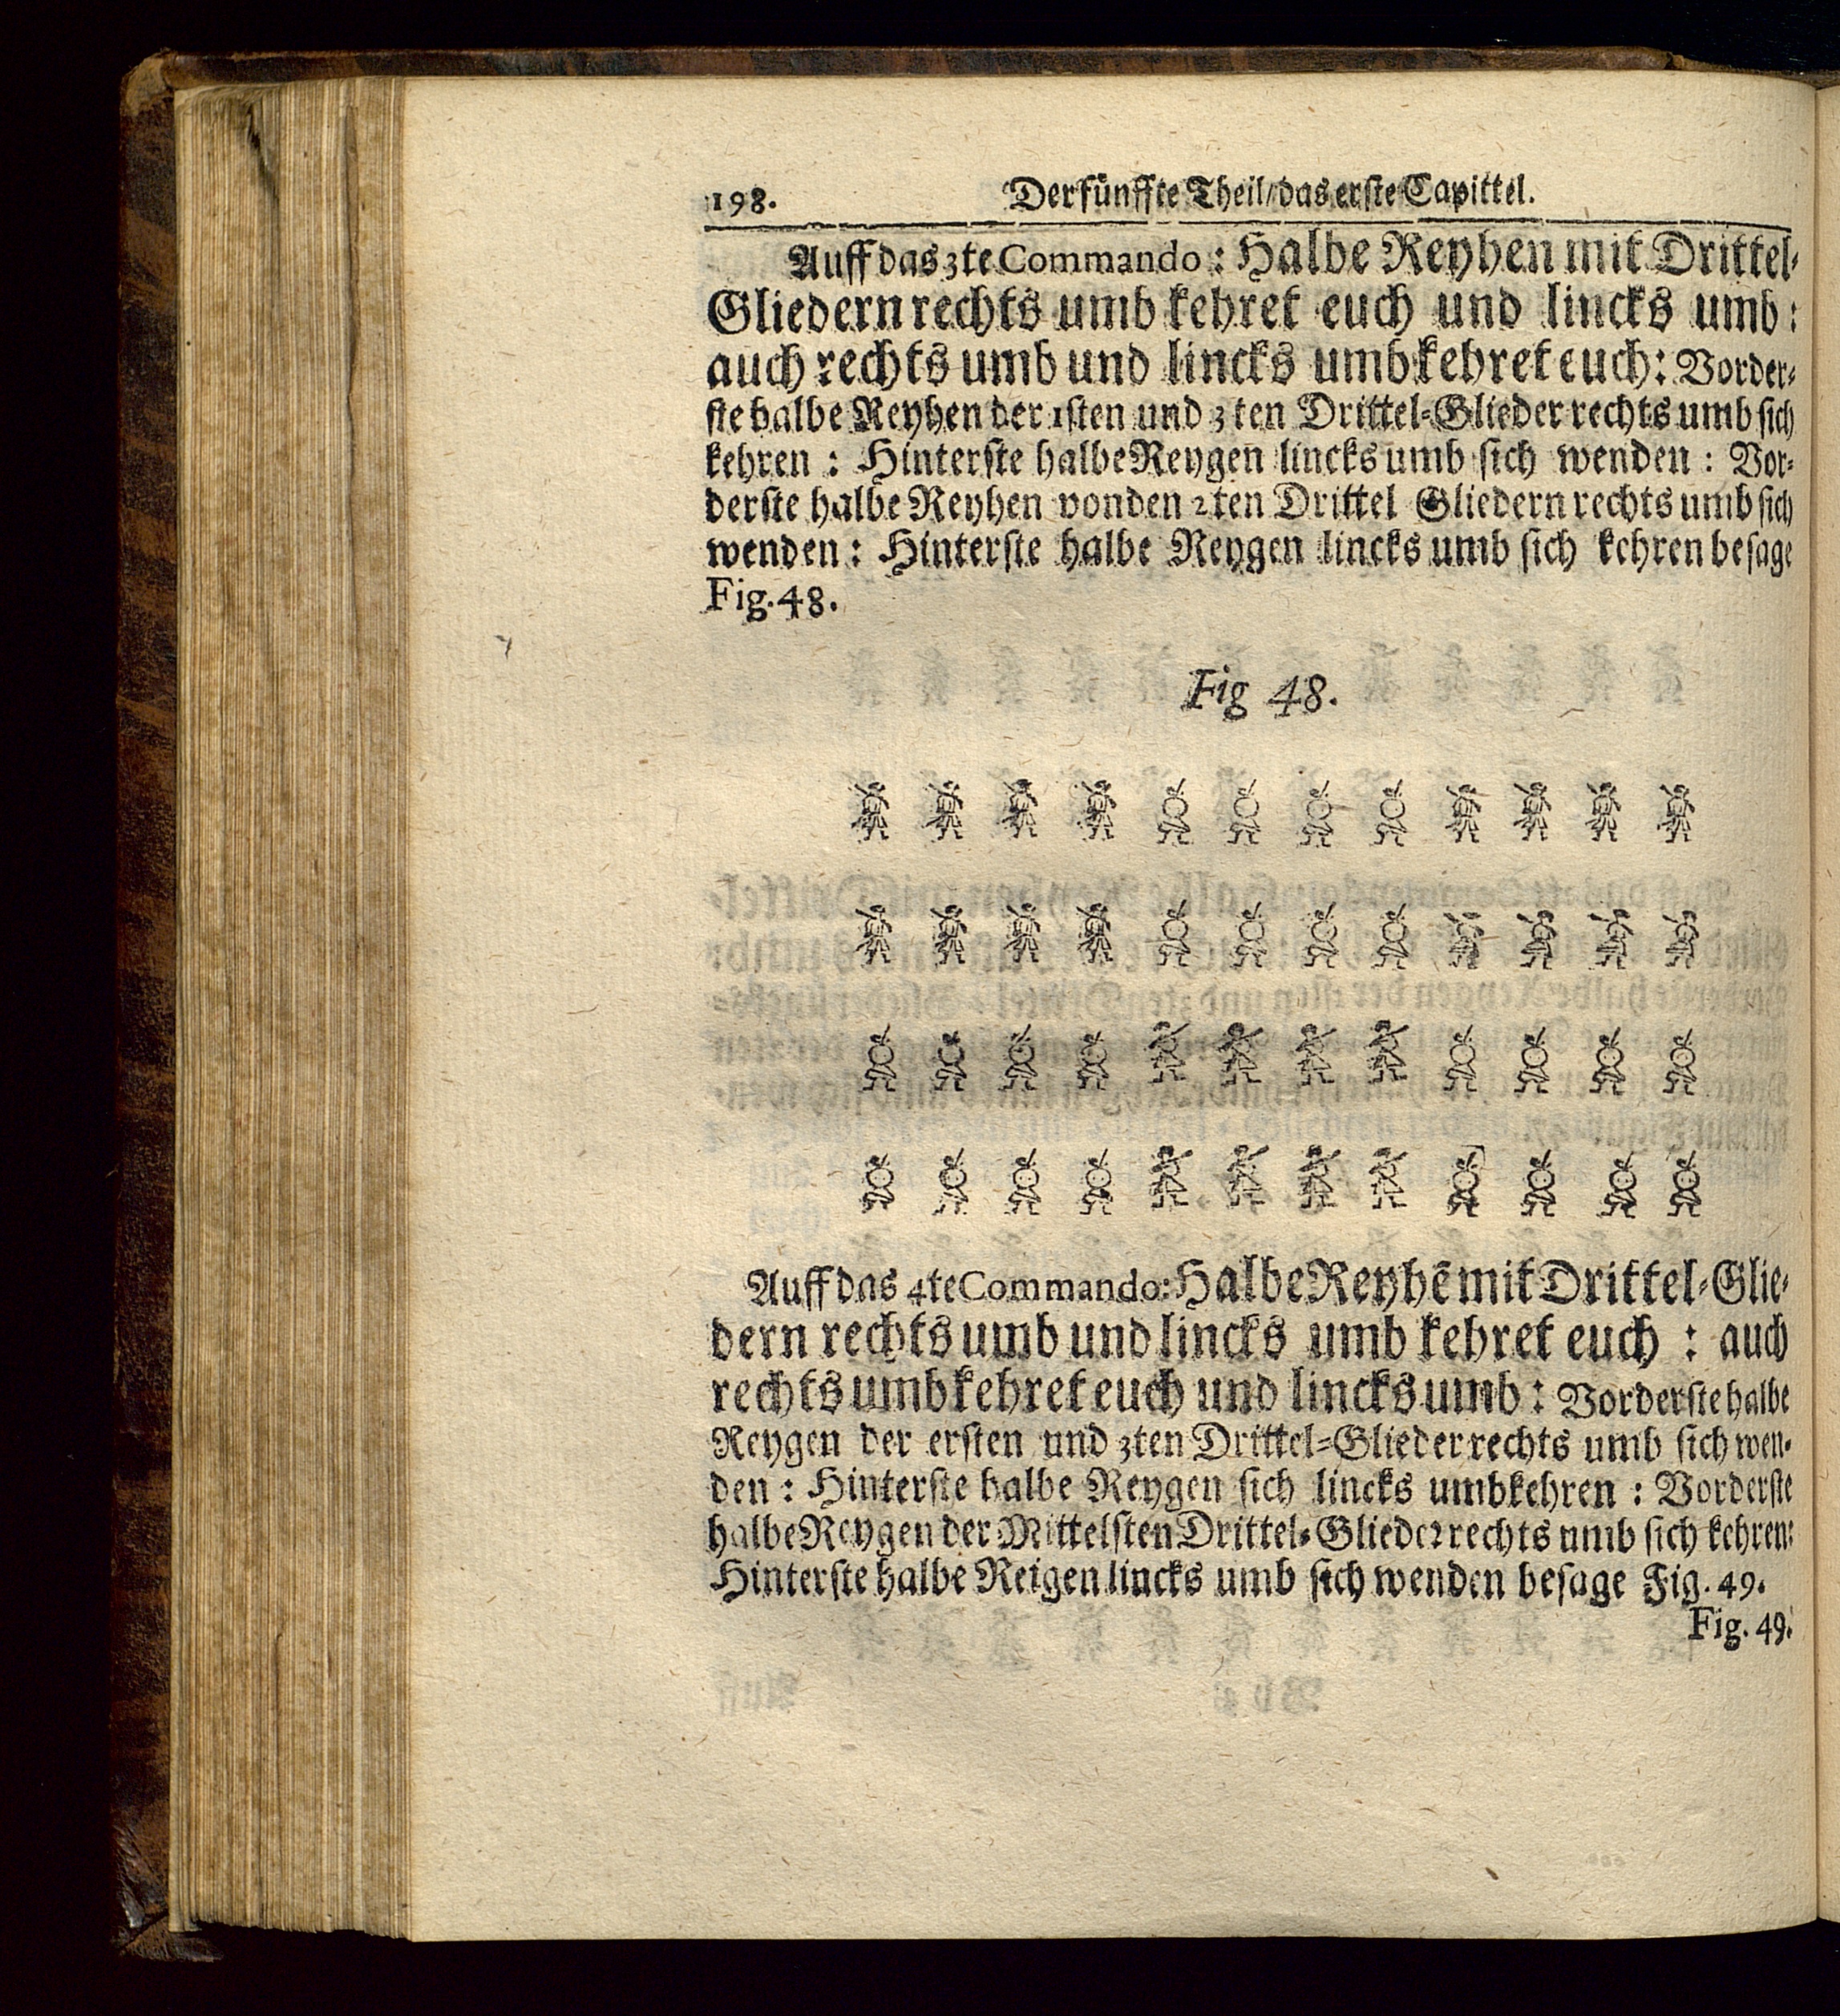 198. Der fünffte Theil/das erste Capittel.
Auff das 3te Commando: Halbe Reyhen mit Drittel-
Gliedern rechts umb kehret euch und lincks umb:
auch rechts umb und lincks umb kehret euch: Vorder-
ste halbe Reyhen der 1sten und 3ten Drittel-Glieder rechts umb sich
kehren: Hinterste halbe Reygen lincks umb sich wenden: Vor-
derste halbe Reyhen von den 2ten Drittel Gliedern rechts umb sich
wenden: Hinterste halbe Reygen lincks umb sich kehren besage
Fig. 48.
Fig 48.
Auff das 4te Commando: Halbe Reyhẽ mit Drittel-Glie-
dern rechts umb und lincks umb kehret euch: auch
rechts umb kehret euch und lincks umb: Vorderste halbe
Reygen der ersten und 3ten Drittel-Glieder rechts umb sich wen-
den: Hinterste halbe Reygen sich lincks umbkehren: Vorderste
halbe Reygen der Mittelsten Drittel-Glieder rechts umb sich kehren:
Hinterste halbe Reigen lincks umb sich wenden besage Fig. 49.
Fig. 49.